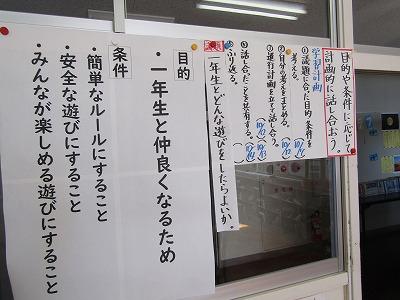 目的や条件に応じて
計画的に話し合おう。
学習計画
①話題に合った目的・条件を
考える。
②自分の考えをまとめる。
③進行計画を立て話し合う。
④話し合ったことを共有する。
ふり返る。
一年生とどんな遊びをしたらよいか。
目的
・一年生と仲良くなるため
条件
・簡単なルールにすること
・安全な遊びにすること
・みんなが楽しめる遊びにすること